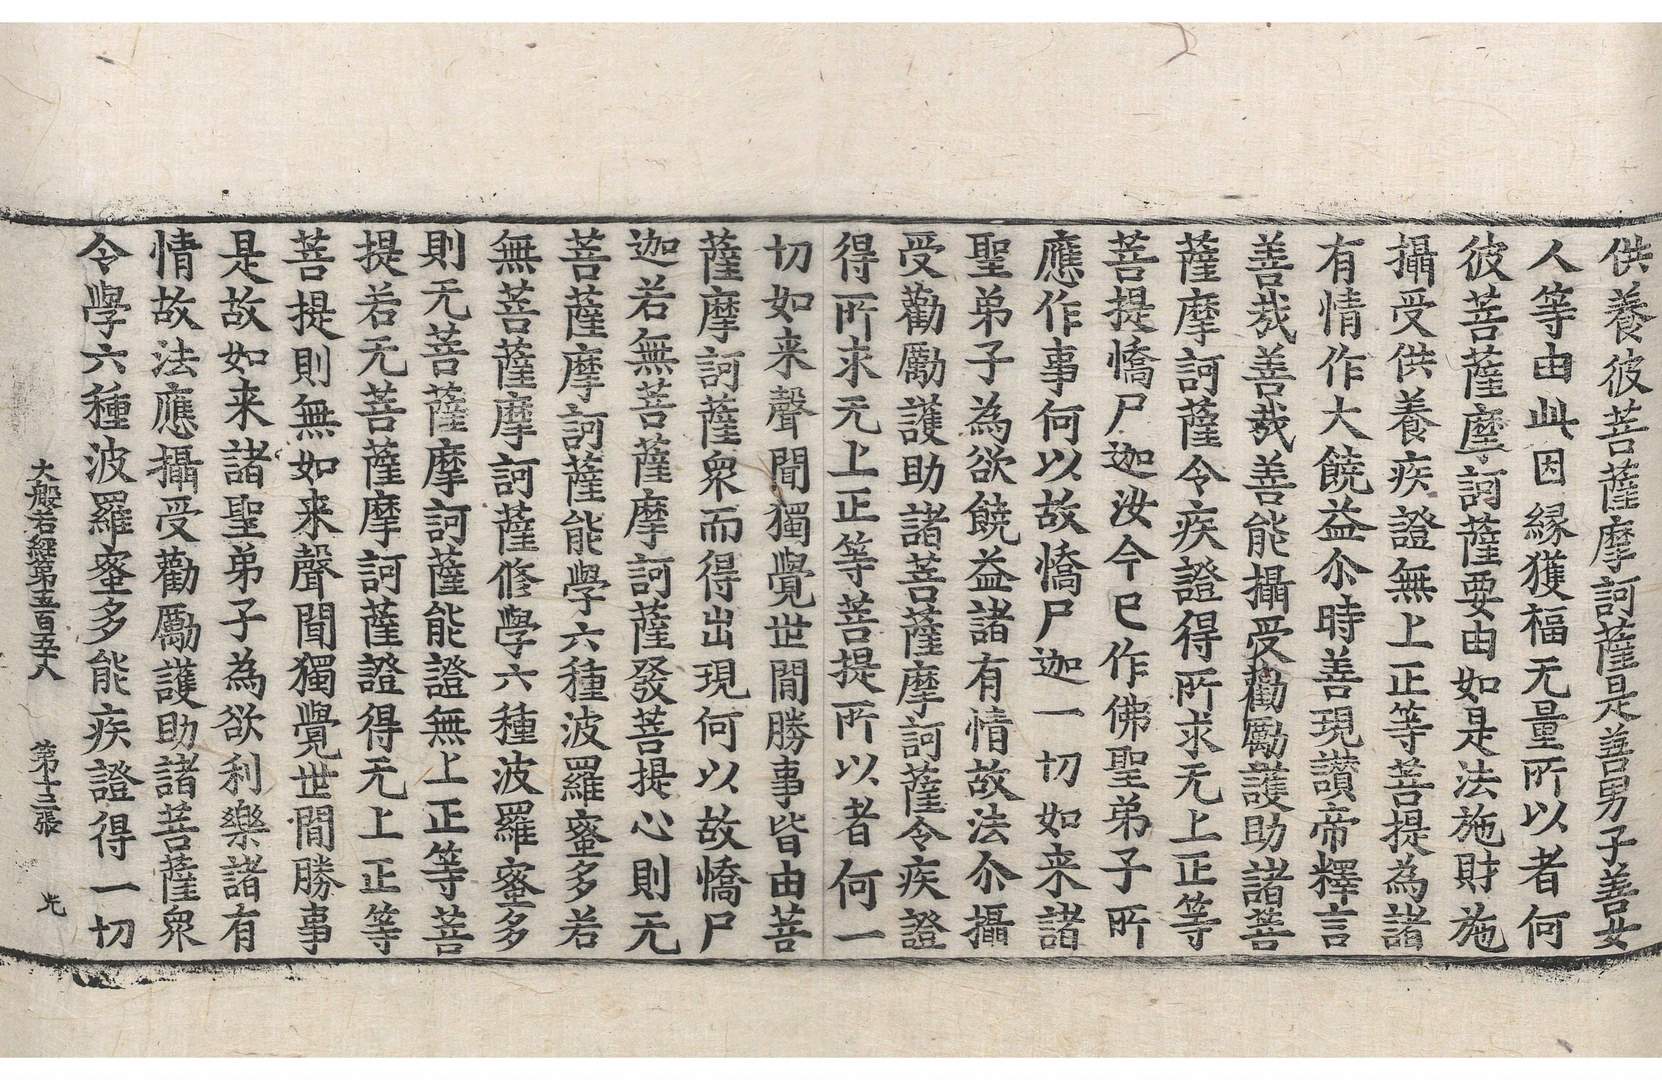 供養彼菩薩摩訶薩是善男子善女
人等由此因緣獲福无量所以者何
彼菩薩摩訶薩要由如是法施財施
攝受供養疾證無上正等菩提為諸
有情作大饒益尒時善現讃帝釋言
善哉善哉善能攝受勸勵護助諸菩
薩摩訶薩令疾證得所求无上正等
菩提憍尸迦汝今已作佛聖弟子所
應作事何以故憍尸迦一切如来諸
聖弟子為欲饒益諸有情故法尒攝
受勸勵護助諸菩薩摩訶薩令疾證
得所求无上正等菩提所以者何一
切如来聲聞獨覺世間勝事皆由菩
薩摩訶薩衆而得出現何以故憍尸
迦若無菩薩摩訶薩發菩提心則无
菩薩摩訶薩能學六種波羅蜜多若
無菩薩摩訶薩修學六種波羅蜜多
則无菩薩摩訶薩能證無上正等菩
提若无菩薩摩訶薩證得无上正等
菩提則無如来聲聞獨覺世間勝事
是故如来諸聖弟子為欲利樂諸有
情故法應攝受勸勵護助諸菩薩衆
令學六種波羅蜜多能疾證得一切
大般若經第五百五八 第十三張 光